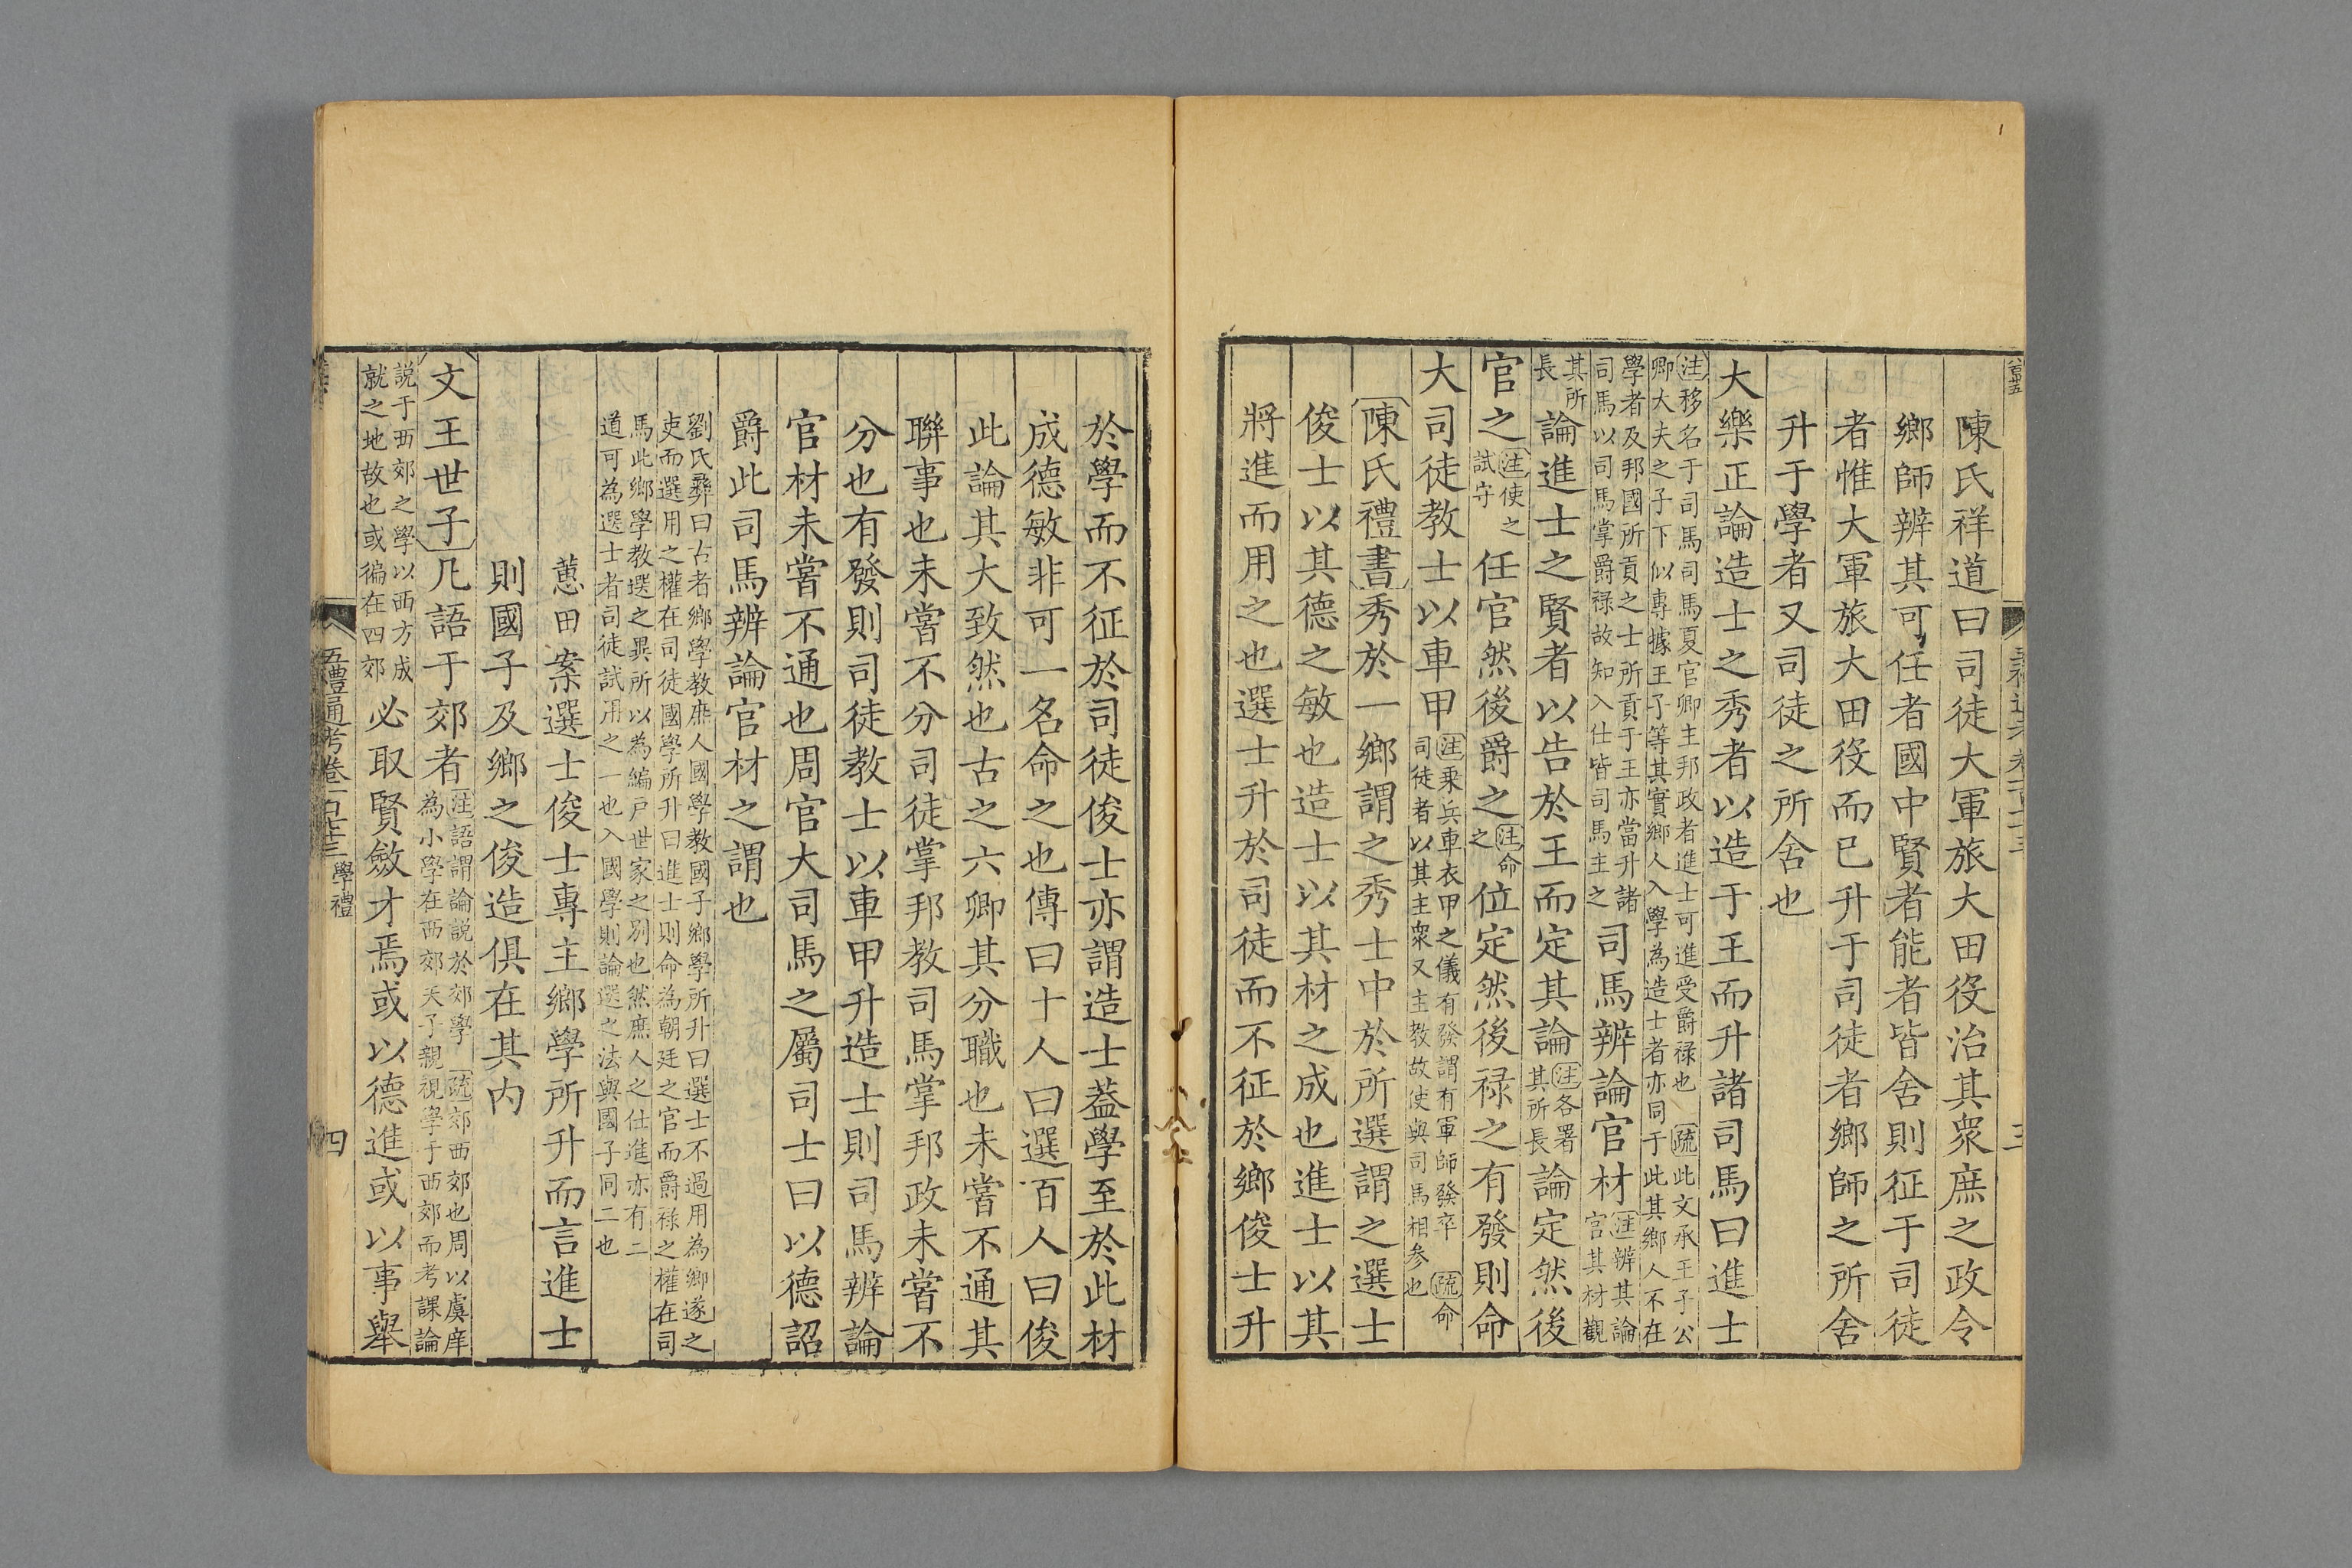 陳氏祥道曰司徒大軍旅大田役治其衆庶之政令
鄉師辨其可任者國中賢者能者皆舍則征于司徒
者惟大軍旅大田役而已升于司徒者鄉師之所舍
升于學者又司徒之所舍也
大樂正論造士之秀者以造于王而升諸司馬曰進士
注移名于司馬司馬夏官卿主邦政者進士可進受爵祿也 疏此文承王子公
卿大夫之子下似專據王子等其實鄉人入學為造士者亦同于此其鄉人不在
學者及邦國所貢之士所貢于王亦當升諸
司馬以司馬掌爵祿故知入仕皆司馬主之
司馬辨論官材
注辨其論
官其材觀
其所
長
論進士之賢者以告於王而定其論
注各署
其所長
論定然後
官之
注使之
試守
任官然後爵之
注命
之
位定然後祿之有發則命
大司徒教士以車甲
注乘兵車衣甲之儀有發謂有軍師發卒 疏命
司徒者以其主衆又主教故使與司馬相參也
陳氏禮書秀於一鄉謂之秀士中於所選謂之選士
俊士以其德之敏也造士以其材之成也進士以其
將進而用之也選士升於司徒而不征於鄉俊士升
於學而不征於司徒俊士亦謂造士蓋學至於此材
成德敏非可一名命之也傳曰十人曰選百人曰俊
此論其大致然也古之六卿其分職也未嘗不通其
聯事也未嘗不分司徒掌邦教司馬掌邦政未嘗不
分也有發則司徒教士以車甲升造士則司馬辨論
官材未嘗不通也周官大司馬之屬司士曰以德詔
爵此司馬辨論官材之謂也
劉氏彝曰古者鄉學教庶人國學教國子鄉學所升曰選士不過用為鄉遂之
吏而選用之權在司徒國學所升曰進士則命為朝廷之官而爵祿之權在司
馬此鄉學教選之異所以為編戶世家之別也然庶人之仕進亦有二
道可為選士者司徒試用之一也入國學則論選之法與國子同二也
蕙田案選士俊士專主鄉學所升而言進士
則國子及鄉之俊造俱在其內
文王世子凡語于郊者
注語謂論説於郊學 疏郊西郊也周以虞庠
為小學在西郊天子親視學于西郊而考課論
説于西郊之學以西方成
就之地故也或徧在四郊
必取賢斂才焉或以德進或以事舉
五禮通考卷一百七十三 學禮
四